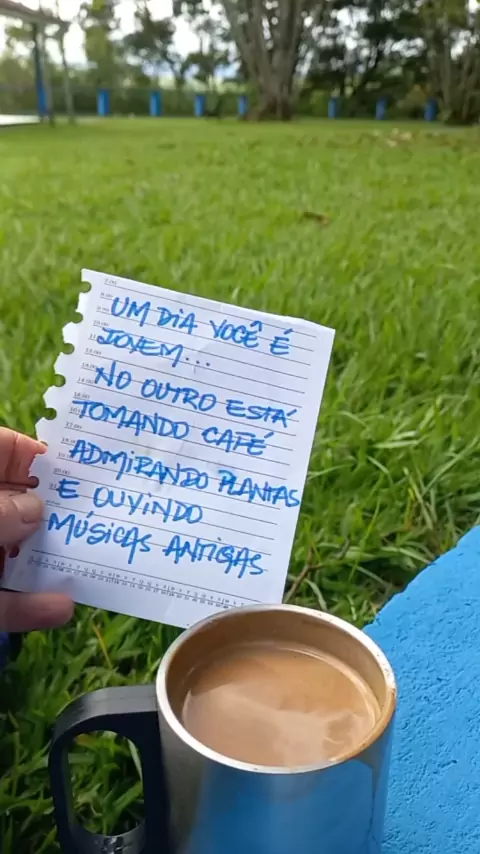 UM DIA VOCÊ É
JOVEM...
NO OUTRO ESTÁ
TOMANDO CAFÉ
ADMIRANDO PLANTAS
E OUVINDO
MÚSICAS ANTIGAS